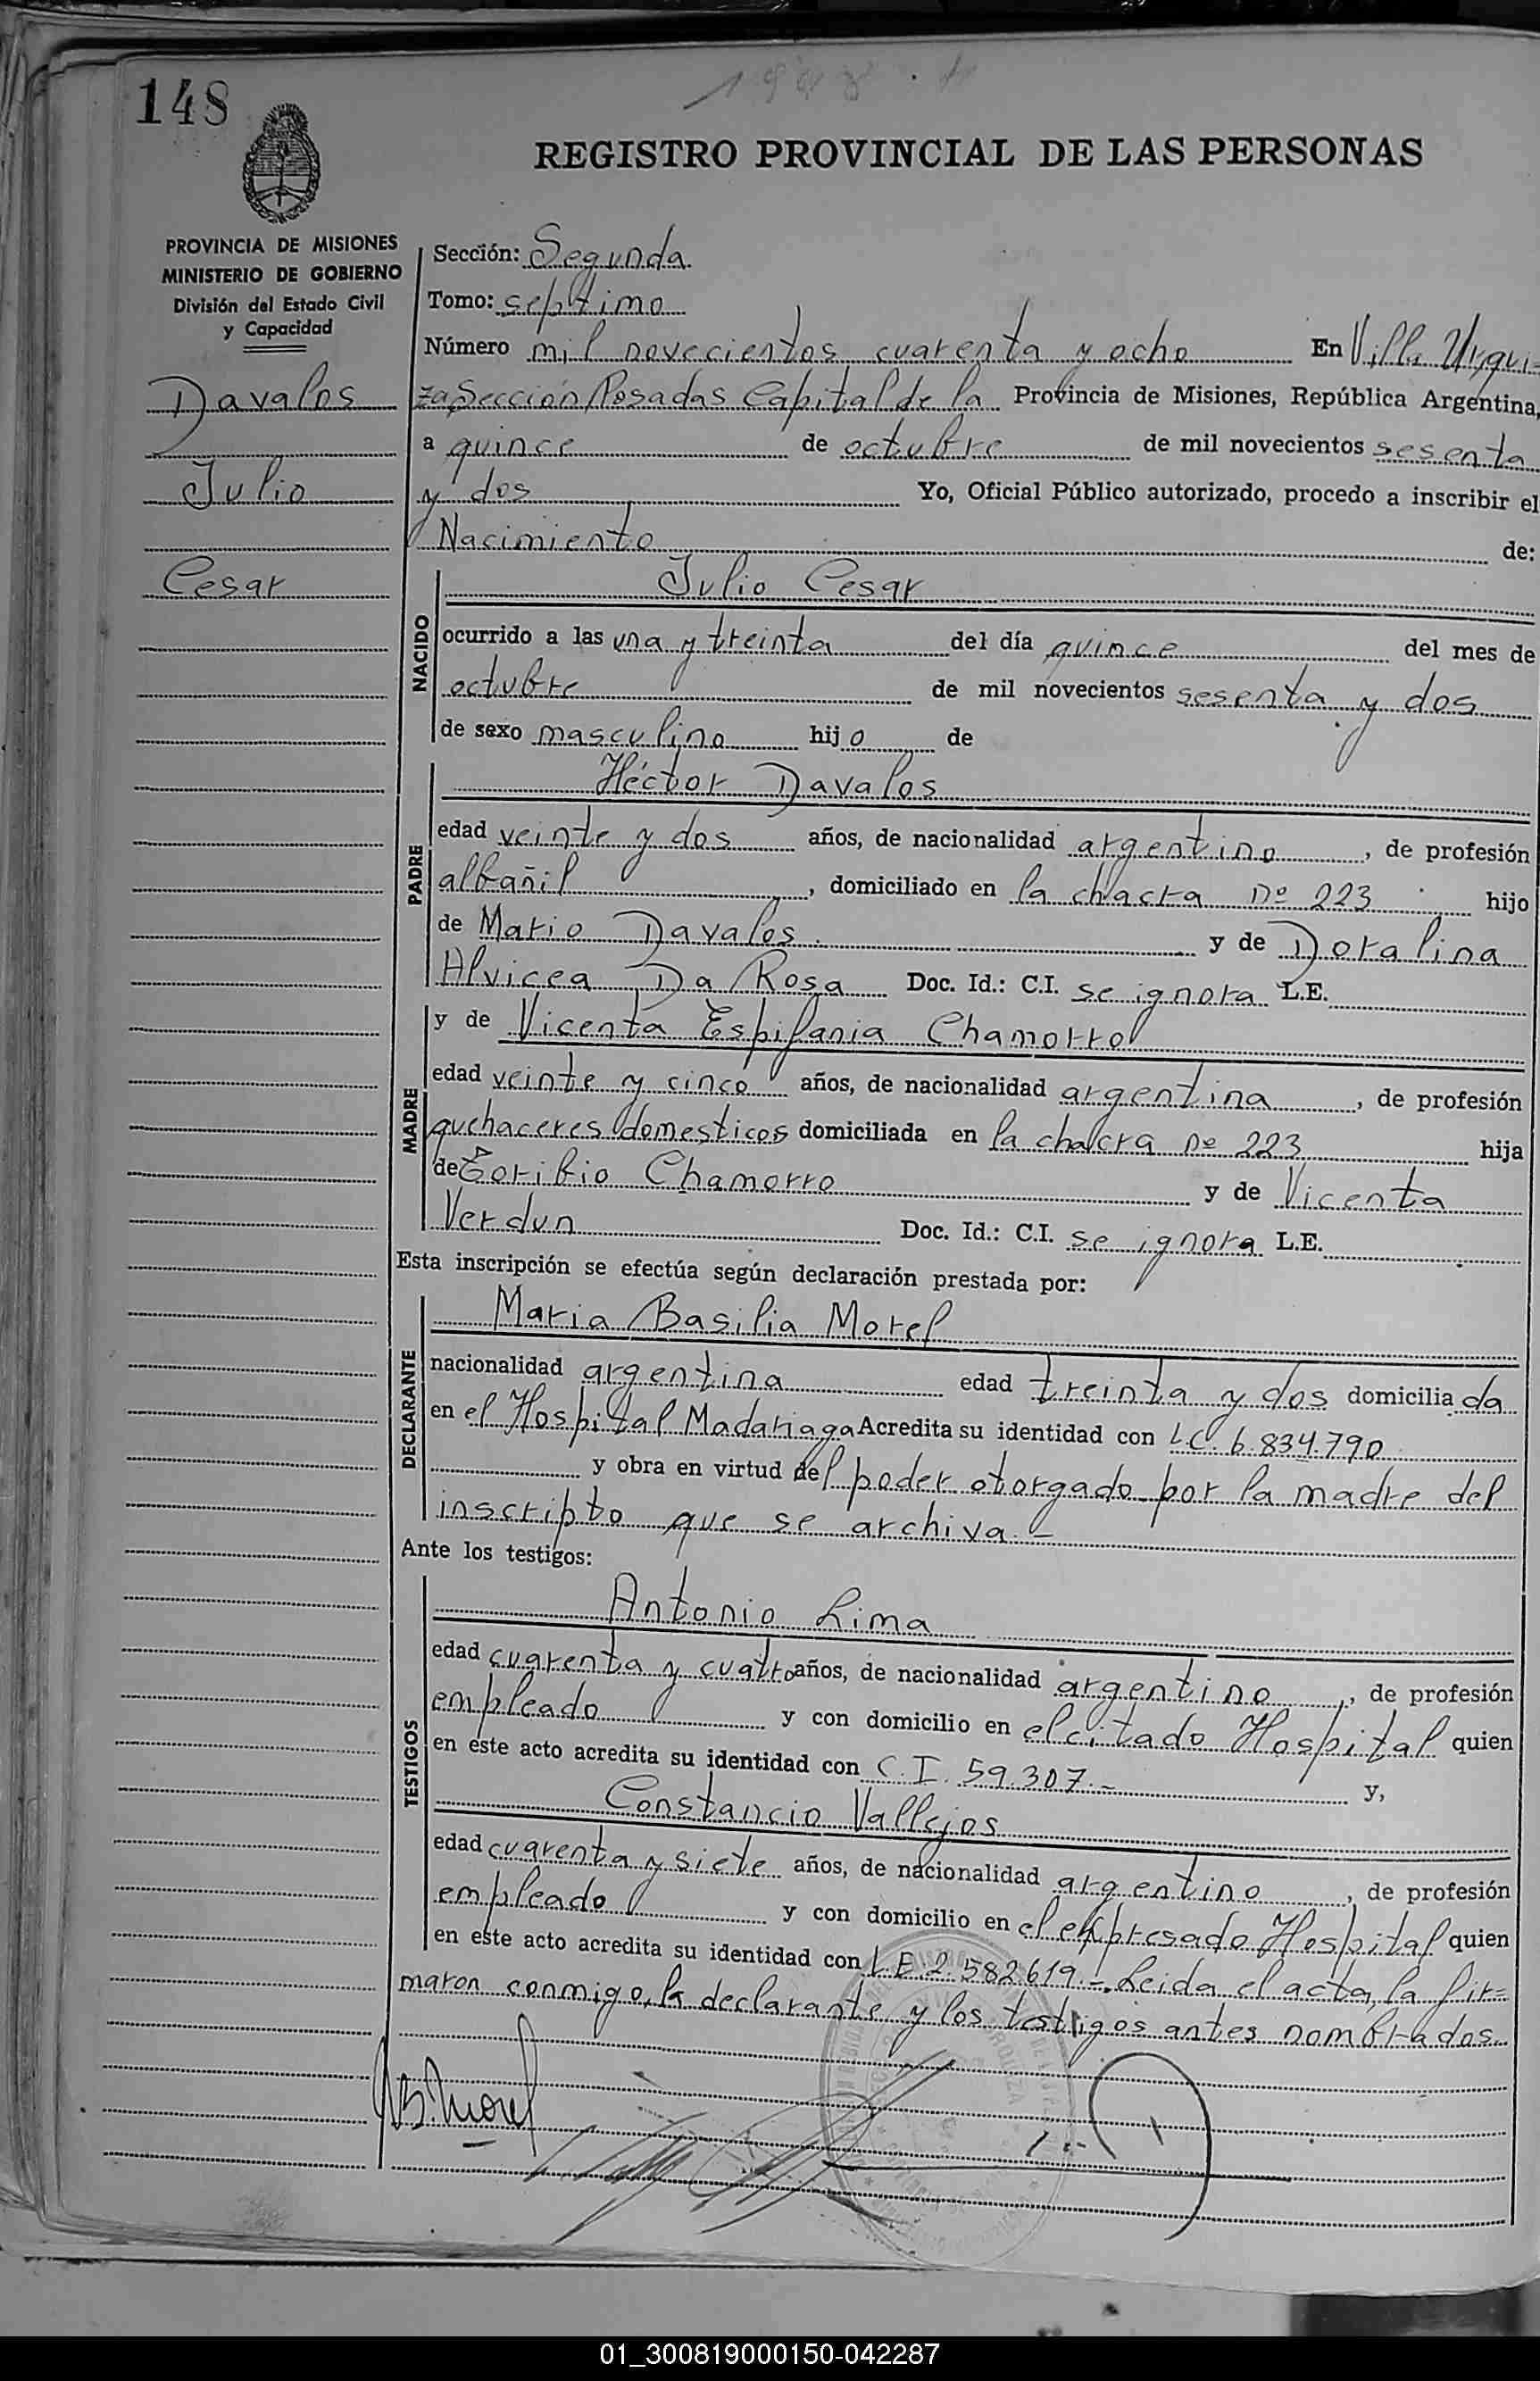 148
1948
REGISTRO PROVINCIAL DE LAS PERSONAS
PROVINCIA DE MISIONES
MINISTERIO DE GOBIERNO
División del Estado Civil
y Capacidad
Davalos
Julio
Cesar
Sección: Segunda
Tomo: septimo
Número mil novecientos cuarenta y ocho En Villa Urqui-
za Sección Posadas Capital de la Provincia de Misiones, República Argentina,
a quince de octubre de mil novecientos sesenta
y dos Yo, Oficial Público autorizado, procedo a inscribir el
Nacimiento de:
NACIDO
Julio Cesar
ocurrido a las una y treinta del día quince del mes de
octubre de mil novecientos sesenta y dos
de sexo masculino hijo de
PADRE
Héctor Davalos
edad veinte y dos años, de nacionalidad argentino, de profesión
albañil, domiciliado en la chacra nº 223 hijo
de Mario Davalos. y de Doralina
Alvicea Da Rosa Doc. Id.: C.I. se ignora L.E.
MADRE
y de Vicenta Espifania Chamorro
edad veinte y cinco años, de nacionalidad argentina, de profesión
quchaceres domesticos domiciliada en la chacra nº 223 hija
de Toribio Chamorro y de Vicenta
Verdun Doc. Id.: C.I. se ignora L.E.
Esta inscripción se efectúa según declaración prestada por:
DECLARANTE
Maria Basilia Morel
nacionalidad argentina edad treinta y dos domiciliada
en el Hospital Madariaga Acredita su identidad con L.C. 6.834.790
y obra en virtud del poder otorgado por la madre del
inscripto que se archiva.-
Ante los testigos:
TESTIGOS
Antonio Lima
edad cuarenta y cuatro años, de nacionalidad argentino, de profesión
empleado y con domicilio en el citado Hospital quien
en este acto acredita su identidad con C.I. 59.307.- y,
Constancio Vallejos
edad cuarenta y siete años, de nacionalidad argentino, de profesión
empleado y con domicilio en el expresado Hospital quien
en este acto acredita su identidad con L.E. 2.582.619.-. Leida el acta, la fir=
maron conmigo, la declarante y los testigos antes nombrados.
B. Morel
01_300819000150-042287